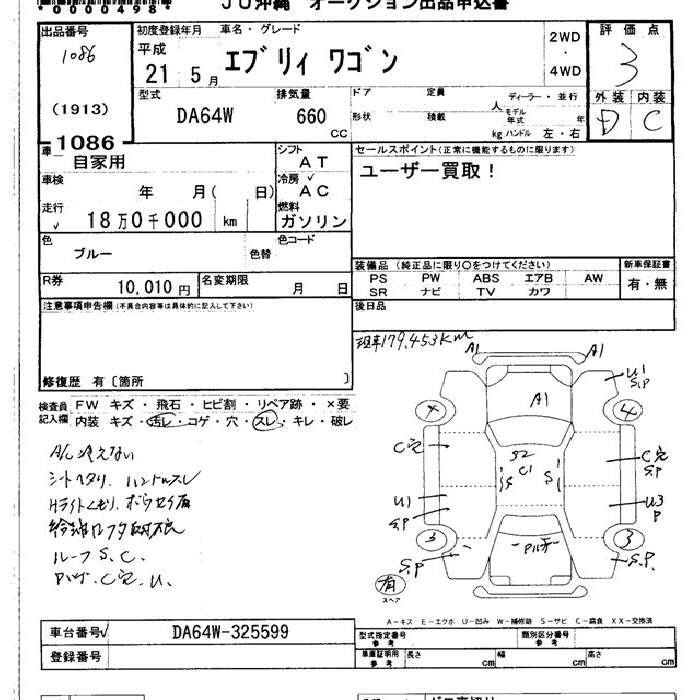 00000498*
JU沖縄 オークション出品申込書
出品番号
1086
(1913)
1086
初度登録年月
平成
21 5月
車名・グレード
エブリィ ワゴン
2WD
・
4WD
評価点
3
外装 内装
D C
型式
DA64W
排気量
660
CC
ドア
形状
定員
人
積載
kg
ディーラー・並行
モデル
年式
年
ハンドル 左・右
車
自家用
車検
年 月( 日)
走行
18万0千000 km
シフト
AT
冷房
AC
燃料
ガソリン
セールスポイント(正常に機能するものに限ります)
ユーザー買取!
色
ブルー
色替
色コード
装備品 (純正品に限り○をつけてください)
PS PW ABS エアB AW
SR ナビ TV カワ
新車保証書
有・無
R券
10,010円
名変期限
月 日
後日品
注意事項申告欄(不具合内容等は具体的に記入して下さい)
修復歴 有〔箇所 〕
現車179,453km
検査員
記入欄
FW キズ ・ 飛石 ・ ヒビ割 ・ リペア跡 ・ ×要
内装 キズ ・ 汚レ ・ コゲ ・ 穴 ・ スレ ・ キレ ・ 破レ
A/C冷えない
シートヘタリ、ハンドルスレ
Hライトくもり、
ルーフ S.C.
C穴 U.
A1
A1
A1
U1
S.P
4
C穴
S2
C1
S
C穴
S.P
U1
S.P
U3
P
3
3
S.P
S.P.
有
スペア
A-キズ E-エクボ U-凹み W-補修跡 S-サビ C-腐食 XX-交換済
車台番号
DA64W-325599
登録番号
型式指定番号
参考
類別区分番号
参考
車庫証明用
参考
長さ cm
幅 cm
高さ cm